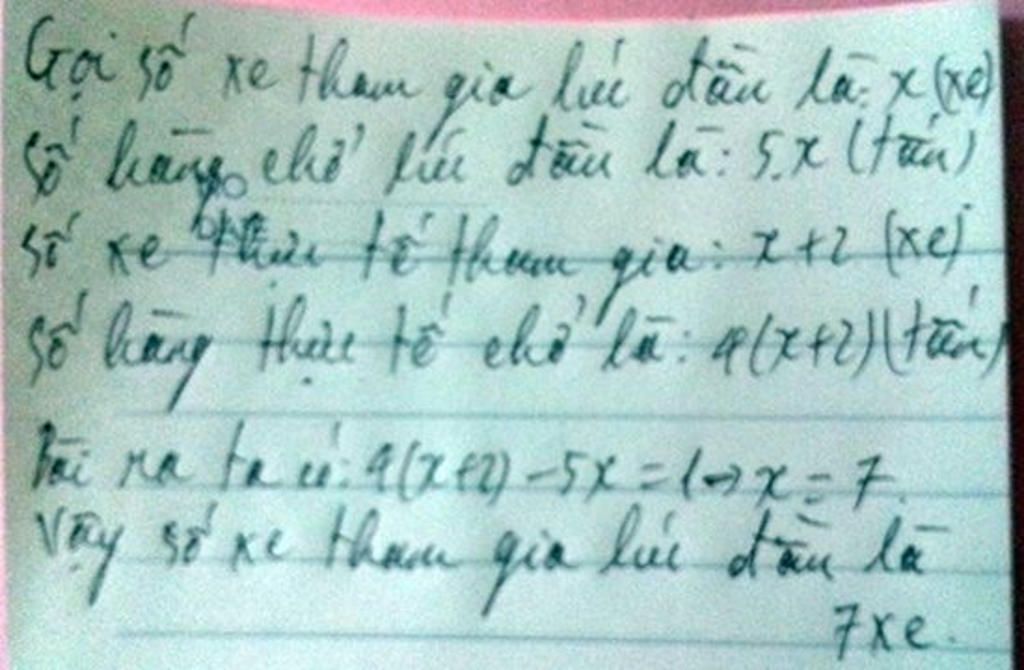 Gọi số xe tham gia lúc đầu là: x (xe)
Số hàng chở lúc đầu là: 5.x (tấn)
Số xe thực tế tham gia: x+2 (xe)
Số hàng thực tế chở là: 4(x+2) (tấn)
Bài ra ta có: 4(x+2) - 5x = 1 => x = 7.
Vậy số xe tham gia lúc đầu là
7 xe.